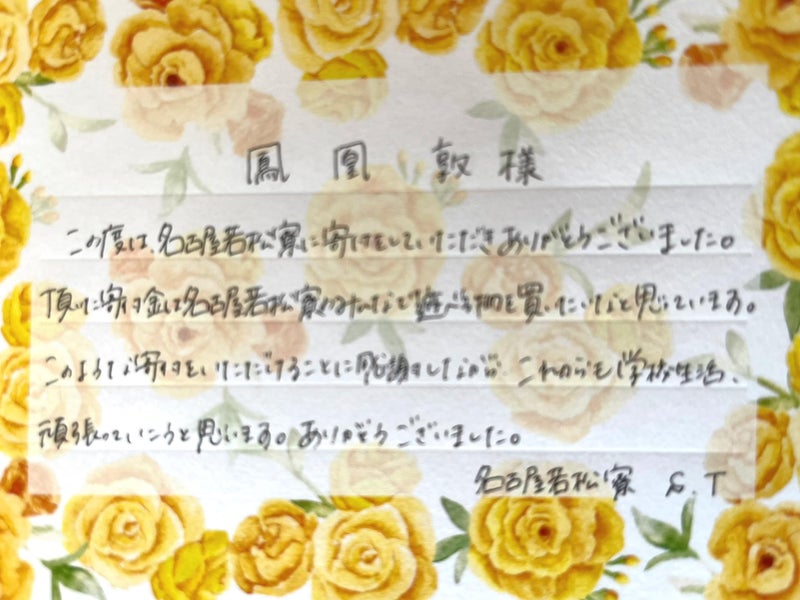 鳳 凰 敦 様
この度は、名古屋若松寮に寄付をしていただきありがとうございました。
頂いた寄付金は名古屋若松寮のみんなで遊べる物を買いたいなと思っています。
このような寄付をいただけることに感謝しながら、これからも学校生活、
頑張っていこうと思います。ありがとうございました。
名古屋若松寮 S.T